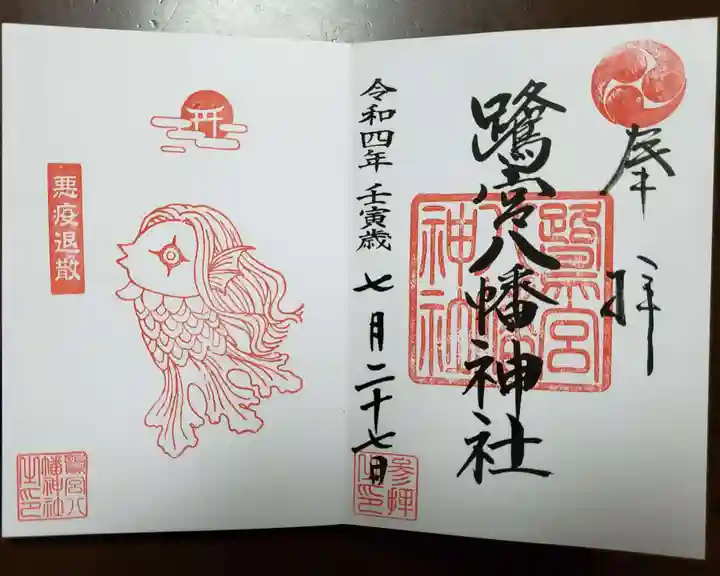 奉拝
鷺宮八幡神社
鷺宮八幡神社
令和四年壬寅歳七月二十七日
参拝之印
悪疫退散
鷺宮八幡神社之印